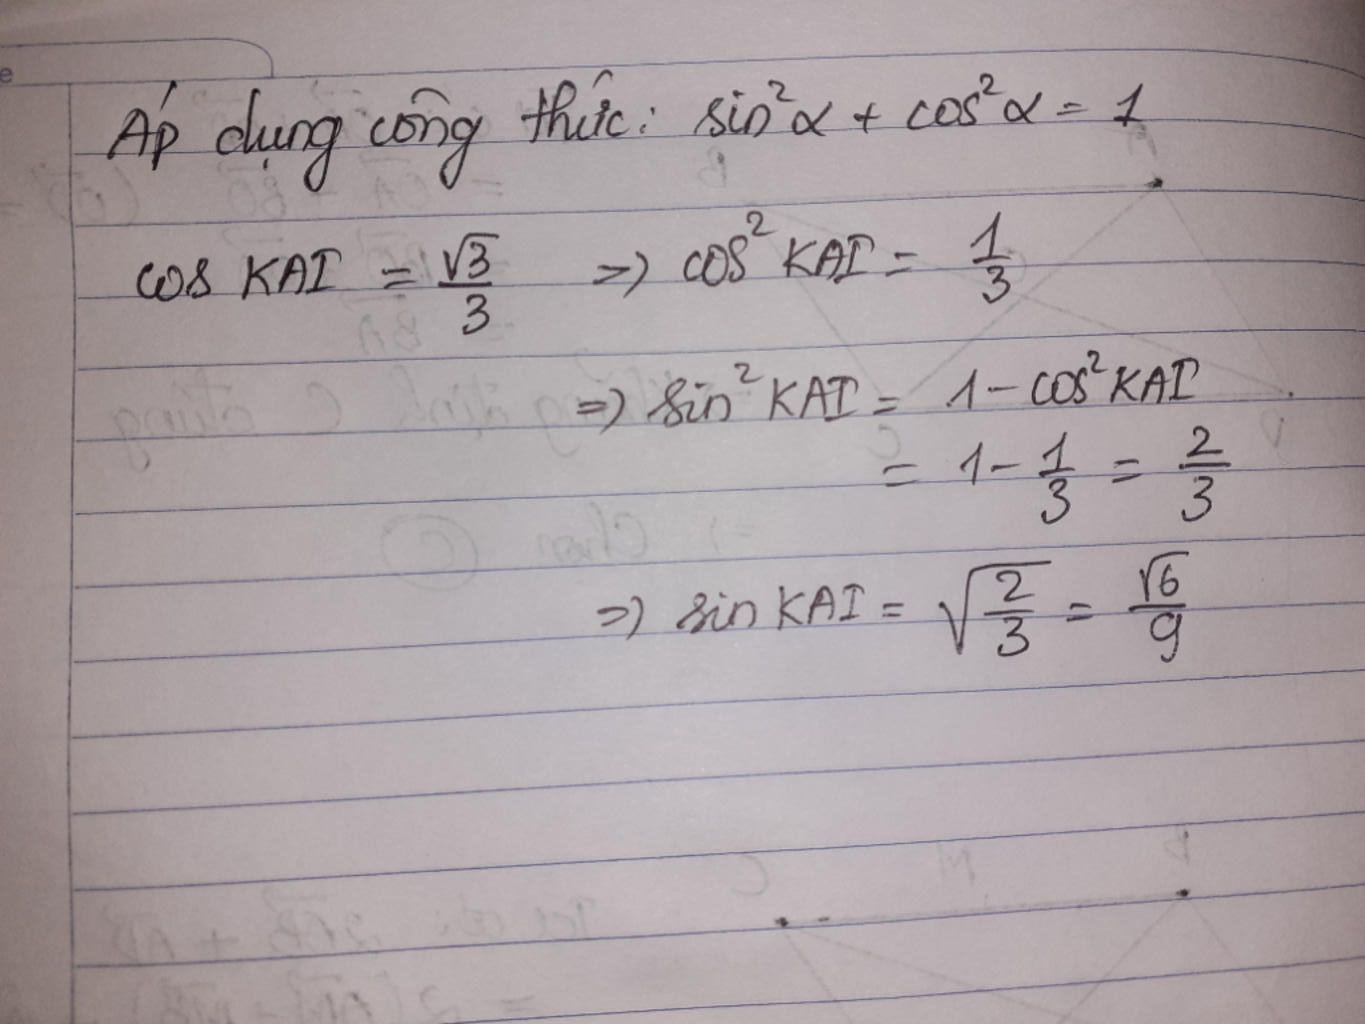 Áp dụng công thức: sin²α + cos²α = 1
cos KAI = √3/3 => cos² KAI = 1/3
=> sin² KAI = 1 - cos² KAI
= 1 - 1/3 = 2/3
=> sin KAI = √(2/3) = √6/9